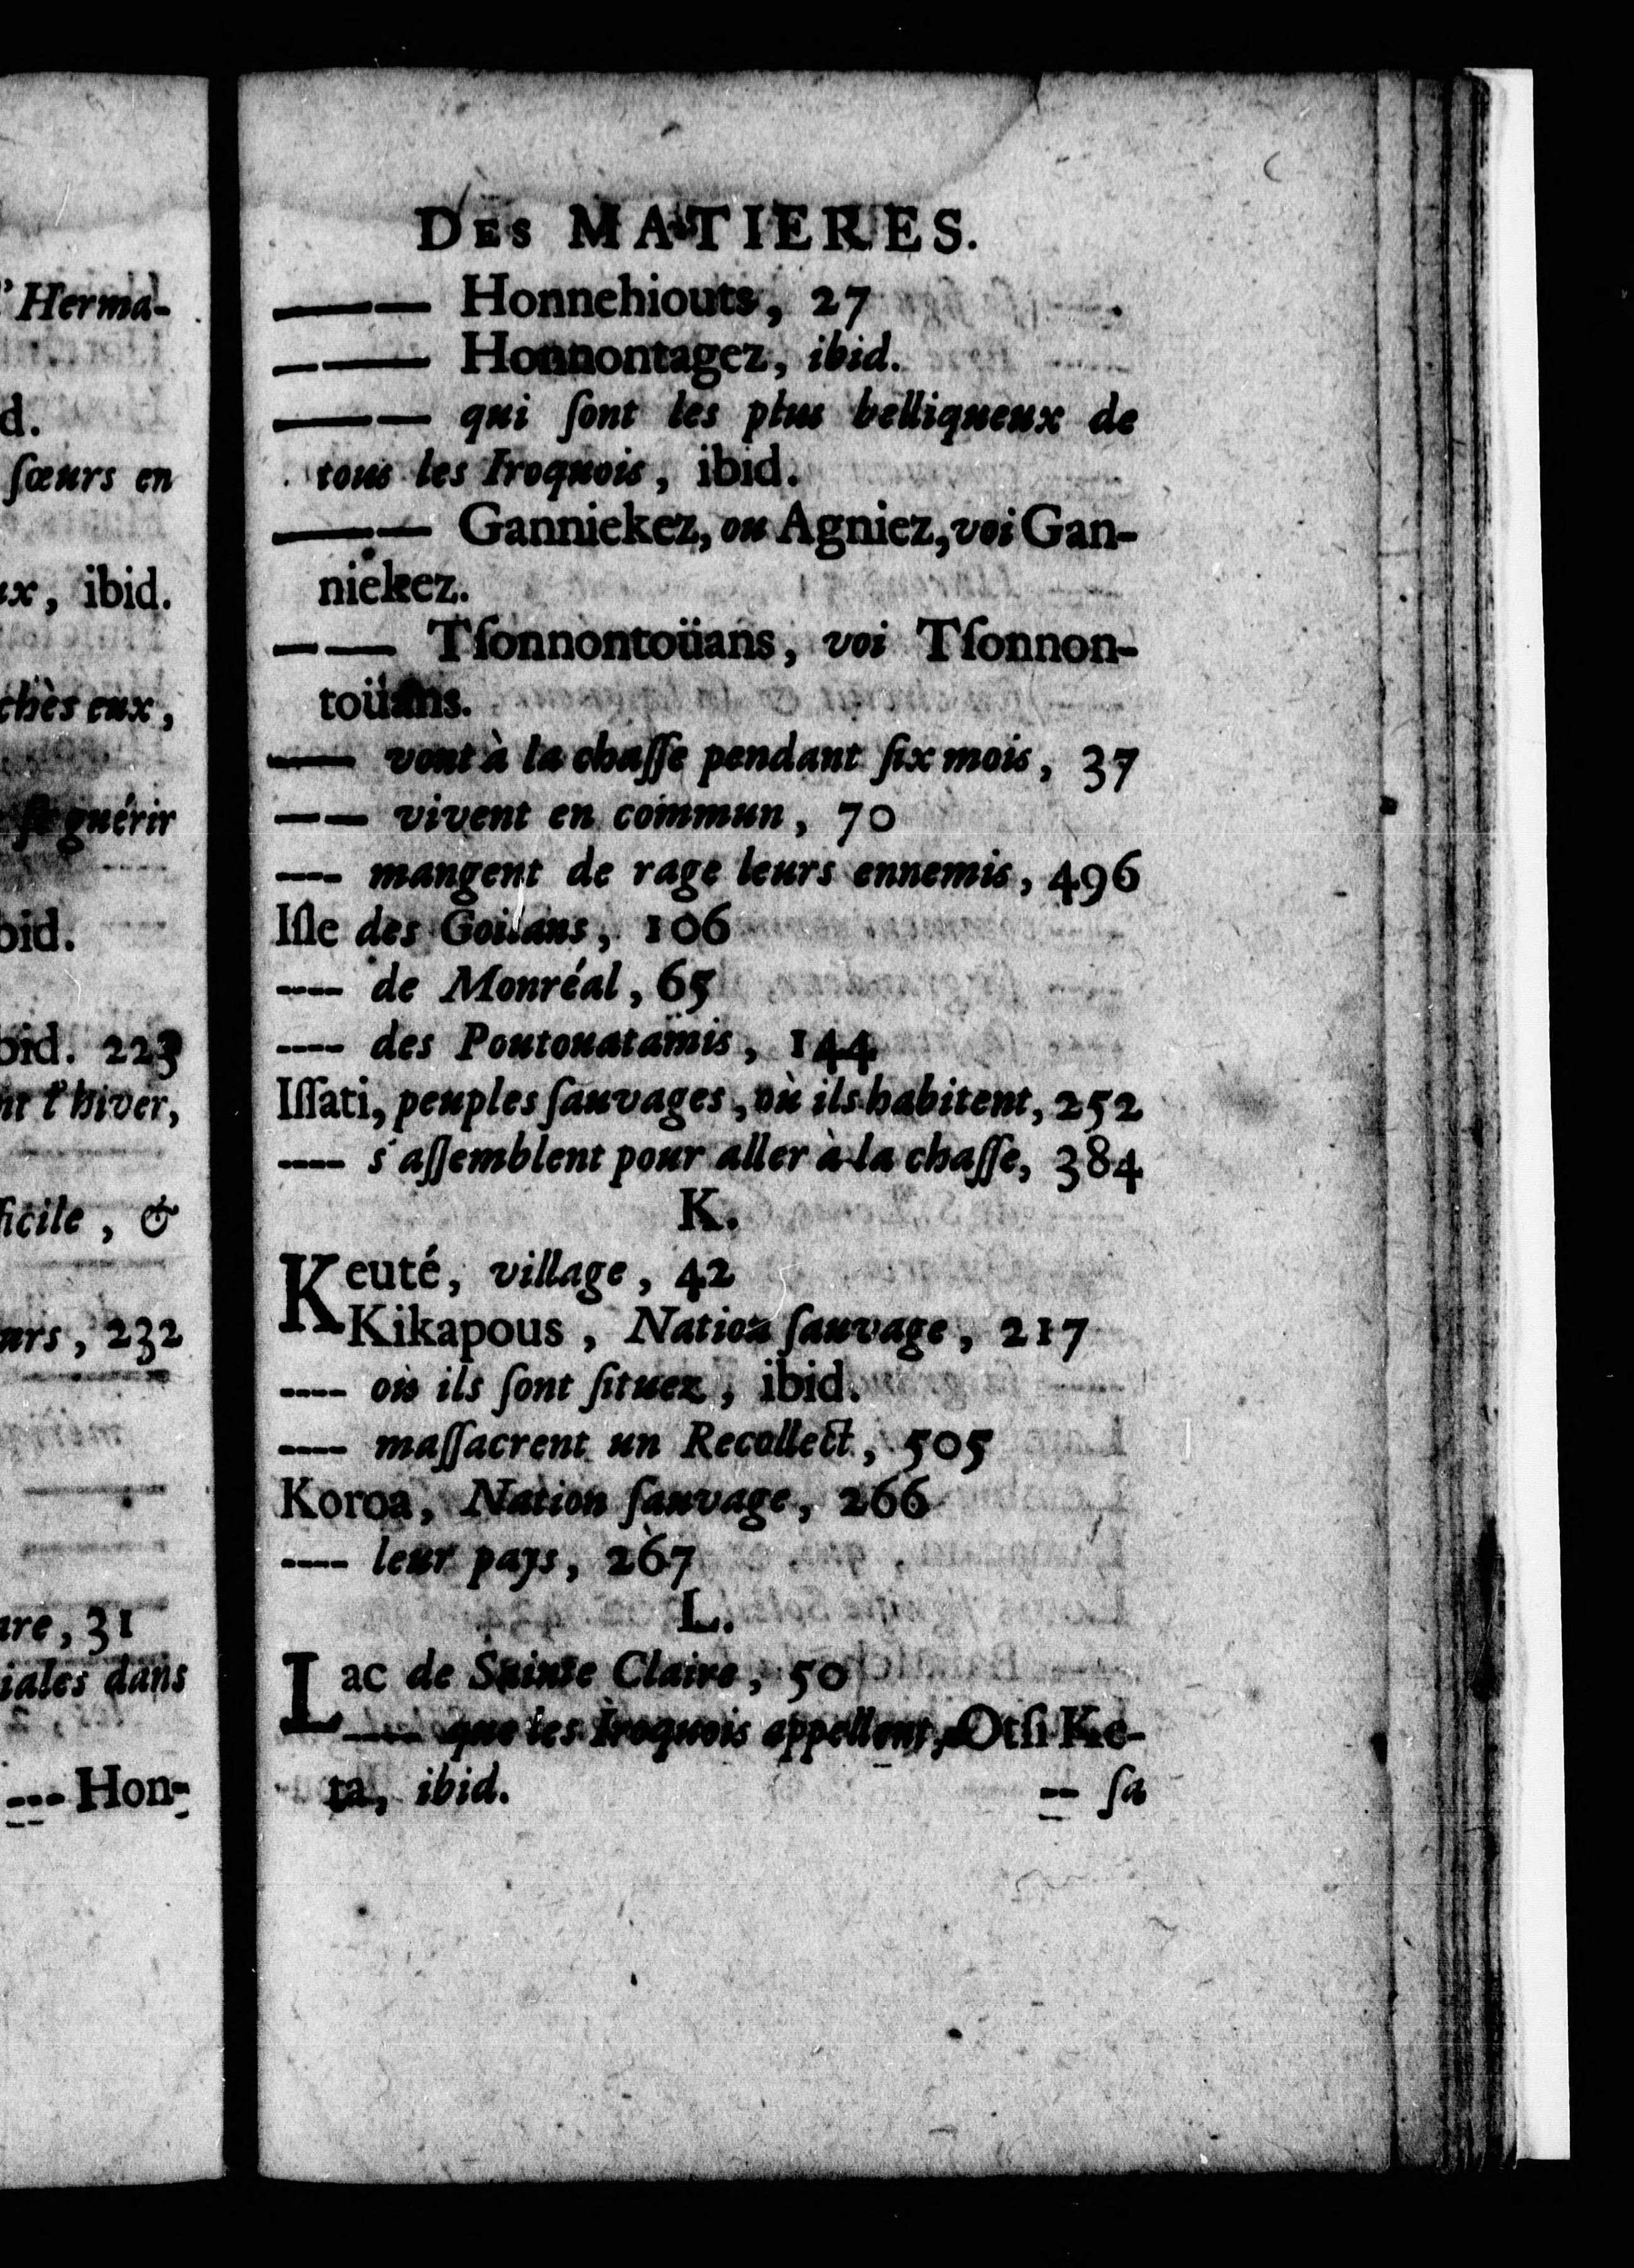 'Herma-
d.
ſœurs en
ux, ibid.
chès eux,
ſe guérir
bid.
bid. 223
nt l'hiver,
ficile, &
urs, 232
are, 31
iales dans
--- Hon-
DES MATIERES.
—— Honnehiouts, 27
—— Honnontagez, ibid.
—— qui ſont les plus belliqueux de
tous les Iroquois, ibid.
—— Ganniekez, ou Agniez, voi Gan-
niekez.
—— Tſonnontoüans, voi Tſonnon-
toüans.
—— vont à la chaſſe pendant ſix mois, 37
—— vivent en commun, 70
--- mangent de rage leurs ennemis, 496
Iſle des Goilans, 106
---- de Monréal, 65
---- des Poutouatamis, 144
Iſſati, peuples ſauvages, où ils habitent, 252
---- s'aſſemblent pour aller à la chaſſe, 384
K.
Keuté, village, 42
Kikapous, Nation ſauvage, 217
---- où ils ſont ſituez, ibid.
---- maſſacrent un Recollect, 505
Koroa, Nation ſauvage, 266
---- leur pays, 267
L.
Lac de Sainte Claire, 50
---- que les Iroquois appellent, Otſi Ke-
ta, ibid.
-- ſa